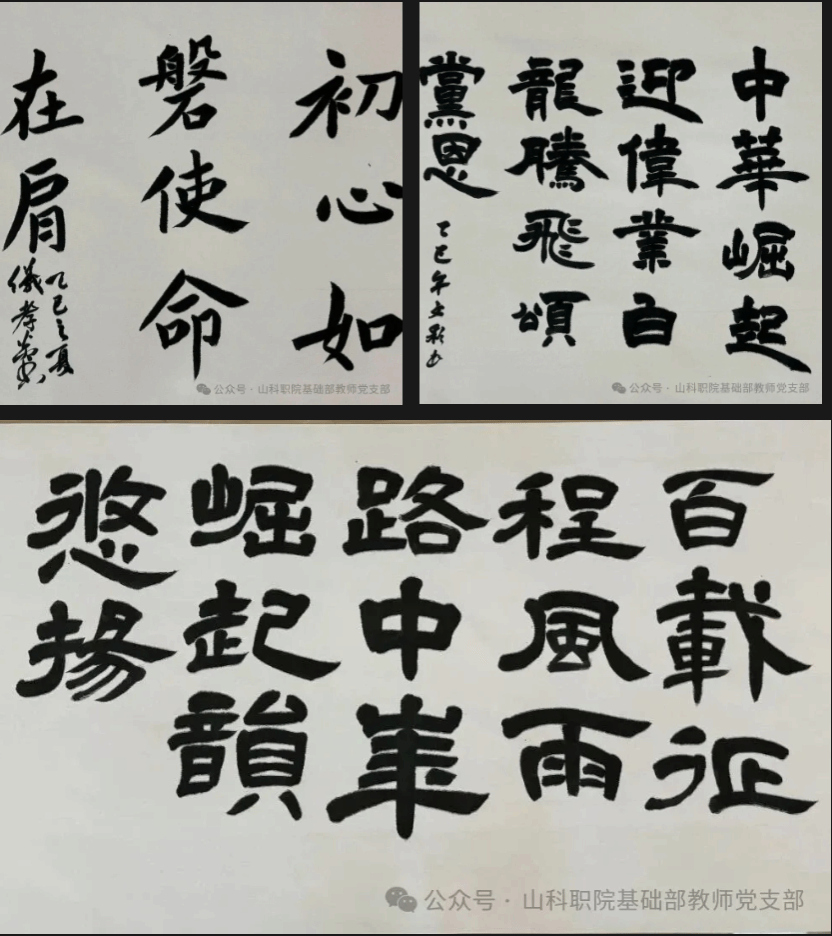 初心如
磐使命
在肩
乙巳之夏
公众号 · 山科职院基础部教师党支部
中華崛起
迎偉業白
龍騰飛頌
黨恩
乙巳年
公众号 · 山科职院基础部教师党支部
百載征
程風雨
路中華
崛起韻
悠揚
公众号 · 山科职院基础部教师党支部